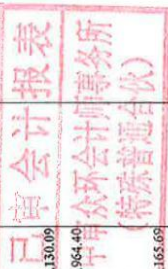 已审会计报表
中审众环会计师事务所
(特殊普通合伙)
,130.09
964.40
165.69